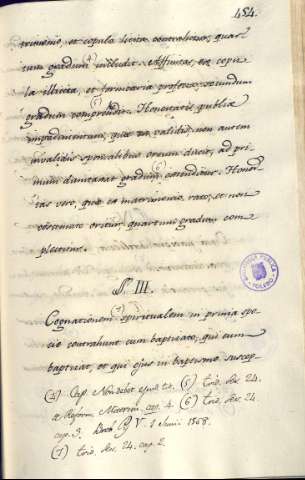 454.
trimonio, et copula licita contrahitur, quar-
tum gradum includit. Affinitas, ex copu-
la illicita, et fornicaria profecta, secundum
gradum comprendit. Honestatis publicæ
impedimentum, quod ex validis, non autem
invalidis sponsalibus ortum ducit, ad pri-
mum dumtaxat gradum extenditur. Hones-
tas vero, quæ ex matrimonio rato, et non
consumato oritur quartum gradum com-
plectitur.
§. III.
Cognationem (7) spiritualem in primia spe-
cie contrahunt cum baptizato, qui eum
baptizat, et qui ejus in baptismo suscep-
(4) Cap. Non debet ejusd. tit. (5) trid. ses. 24.
a Reform. Matrim. cap. 4. (6) trid. ses. 24.
cap. 3. Pij V. 1 Junii 1568.
(7) trid. ses. 24. cap. 2.
BIBLIOTECA PUBLICA TOLEDO